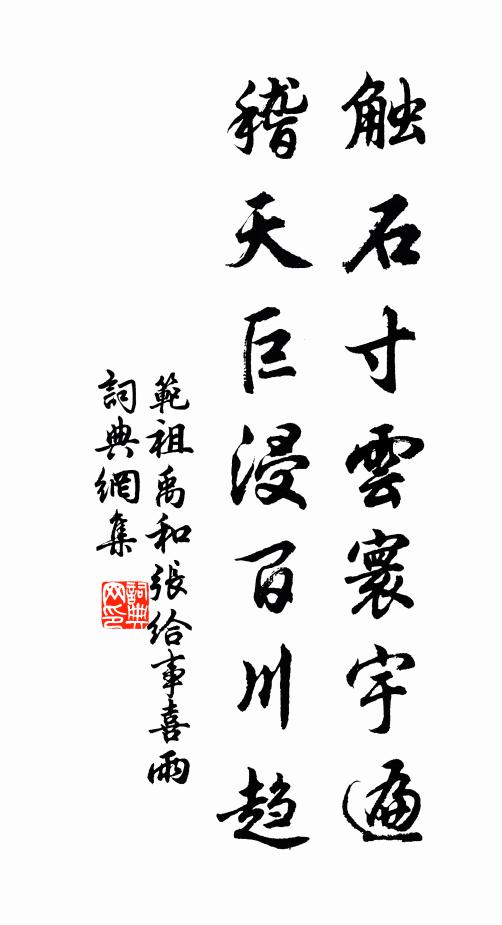 触石寸雲寰宇遍
稽天巨浸百川趋
範祖禹和張給事喜雨
詞典網集
詞典网印